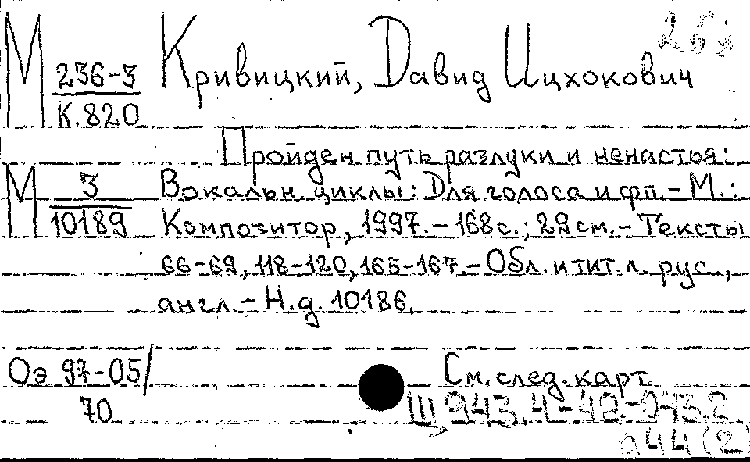 М 236-3 Кривицкий, Давид Ицхокович
К.820
Пройден путь разлуки и ненастья:
М 3 Вокальн. циклы: Для голоса и фп. - М.:
10189 Композитор, 1997. - 168 с.; 29 см. - Тексты
66-69, 118-120, 165-167. - Обл. и тит. л. рус.,
англ. - Н.д. 10186.
Оэ 97-05/ См. след. карт.
70 Щ943.4-48-
а44(2)